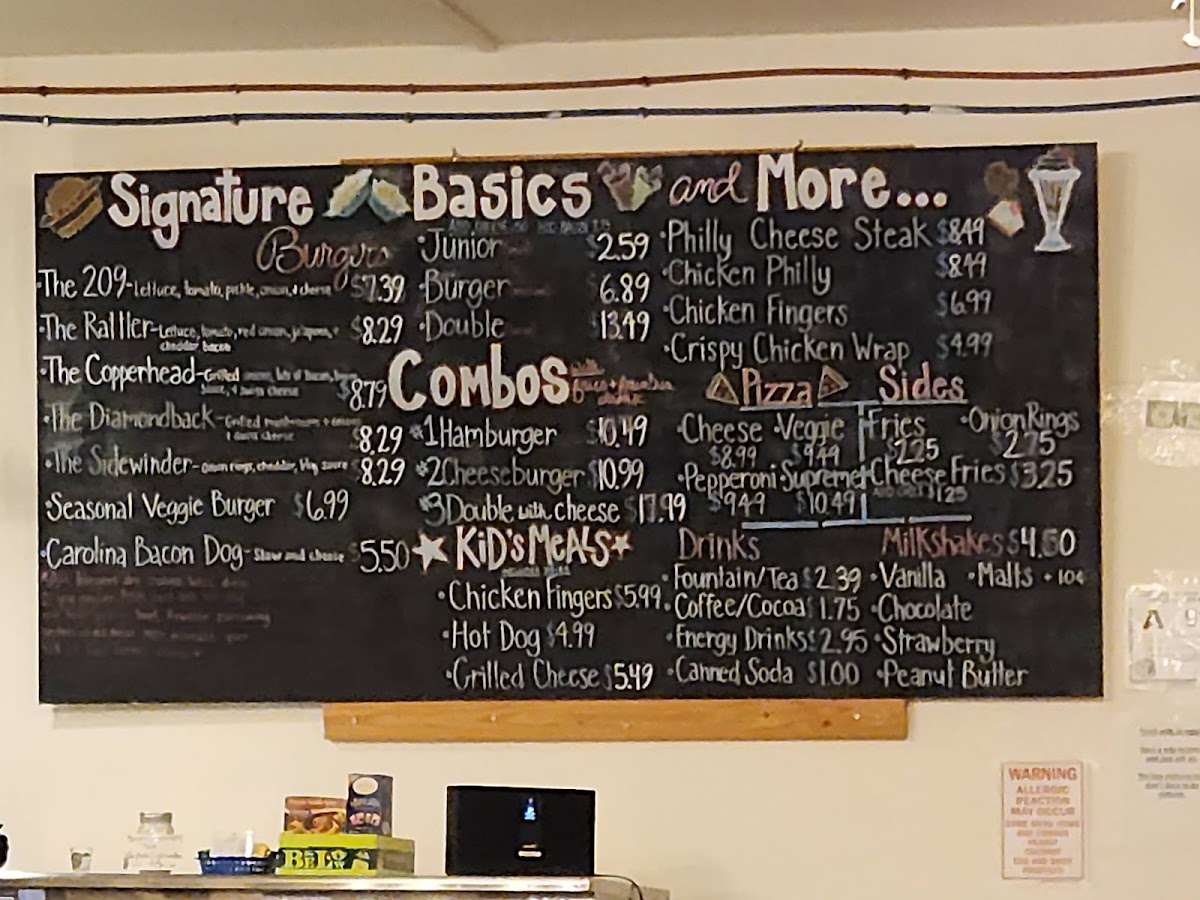 Signature
Burgers
·The 209-Lettuce, tomato, pickle, onion, & cheese $7.39
·The Rattler-Lettuce, tomato, red onion, jalapeno, +
cheddar bacon $8.29
·The Copperhead-Grilled
sauce, & swiss cheese $8.79
·The Diamondback-Grilled mushrooms + onions
& swiss cheese $8.29
·The Sidewinder-onion rings, cheddar, bbq sauce $8.29
·Seasonal Veggie Burger $6.99
·Carolina Bacon Dog-Slaw and cheese $5.50
Basics
·Junior $2.59
·Burger 6.89
·Double 13.49
Combos with
fries + fountain
drink
#1 Hamburger $10.49
#2 Cheeseburger $10.99
#3 Double with cheese $17.99
KiD's MeALS
·Chicken Fingers $5.99
·Hot Dog $4.99
·Grilled Cheese $5.49
and More...
·Philly Cheese Steak $8.49
·Chicken Philly $8.49
·Chicken Fingers $6.99
·Crispy Chicken Wrap $4.99
Pizza
·Cheese ·Veggie
$8.99 $9.49
·Pepperoni ·Supreme
$9.49 $10.49
Sides
·Fries ·Onion Rings
$2.25 $2.75
·Cheese Fries $3.25
$1.25
Drinks
·Fountain/Tea $2.39
·Coffee/Cocoa $1.75
·Energy Drinks $2.95
·Canned Soda $1.00
MilKshakes $4.50
·Vanilla ·Malts + 10¢
·Chocolate
·Strawberry
·Peanut Butter
A 9
WARNING
ALLERGIC
REACTION
MAY OCCUR